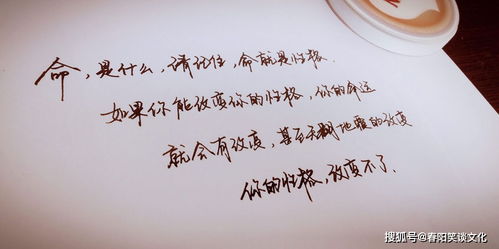 命，是什么，请记住，命就是性格.
如果你能改变你的性格，你的命运
就会有改变，甚至天翻地覆的改变
你的性格，改变不了.
搜狐号@春阳笑谈文化